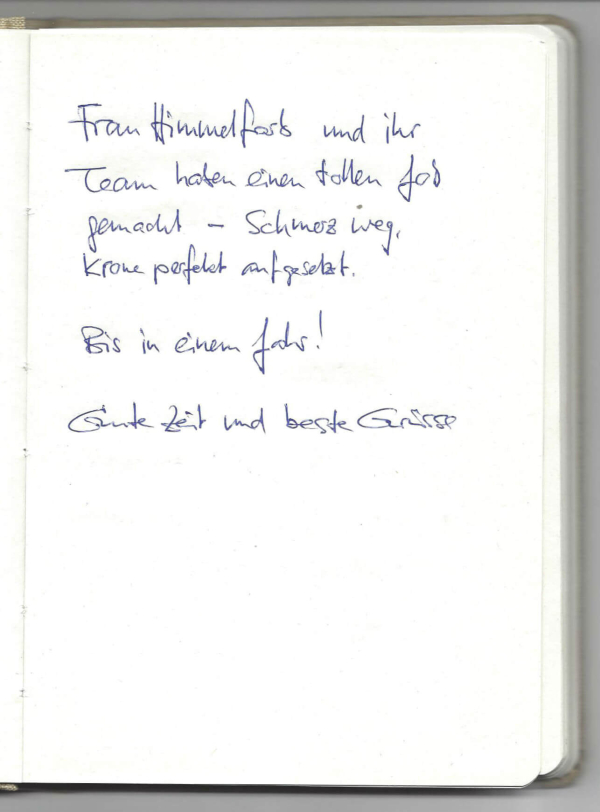 Frau Himmelfarb und ihr
Team haben einen tollen Job
gemacht – Schmerz weg,
Krone perfekt aufgesetzt.
Bis in einem Jahr!
Gute Zeit und beste Grüsse